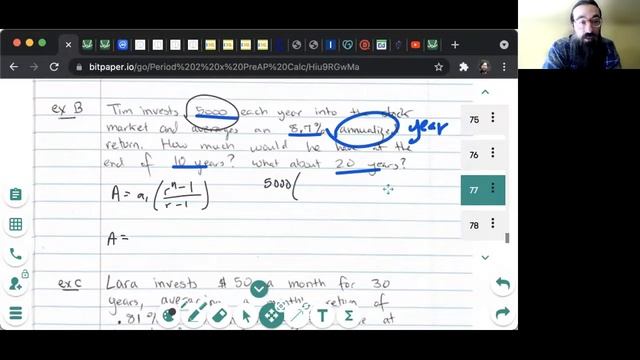 bitpaper.io/go/Period%202%20x%20PreAP%20Calc/Hiu9RGwMa
ex B Tim invests 5000 each year into the stock
market and averages an 8.7% annualize year
return. How much would he have at the
end of 10 years? What about 20 years?
A = a₁ (rⁿ-1 / r-1) 5000(
A =
ex C Lara invests $50 a month for 30
years, a monthly return of
.81% at
75
76
77
78